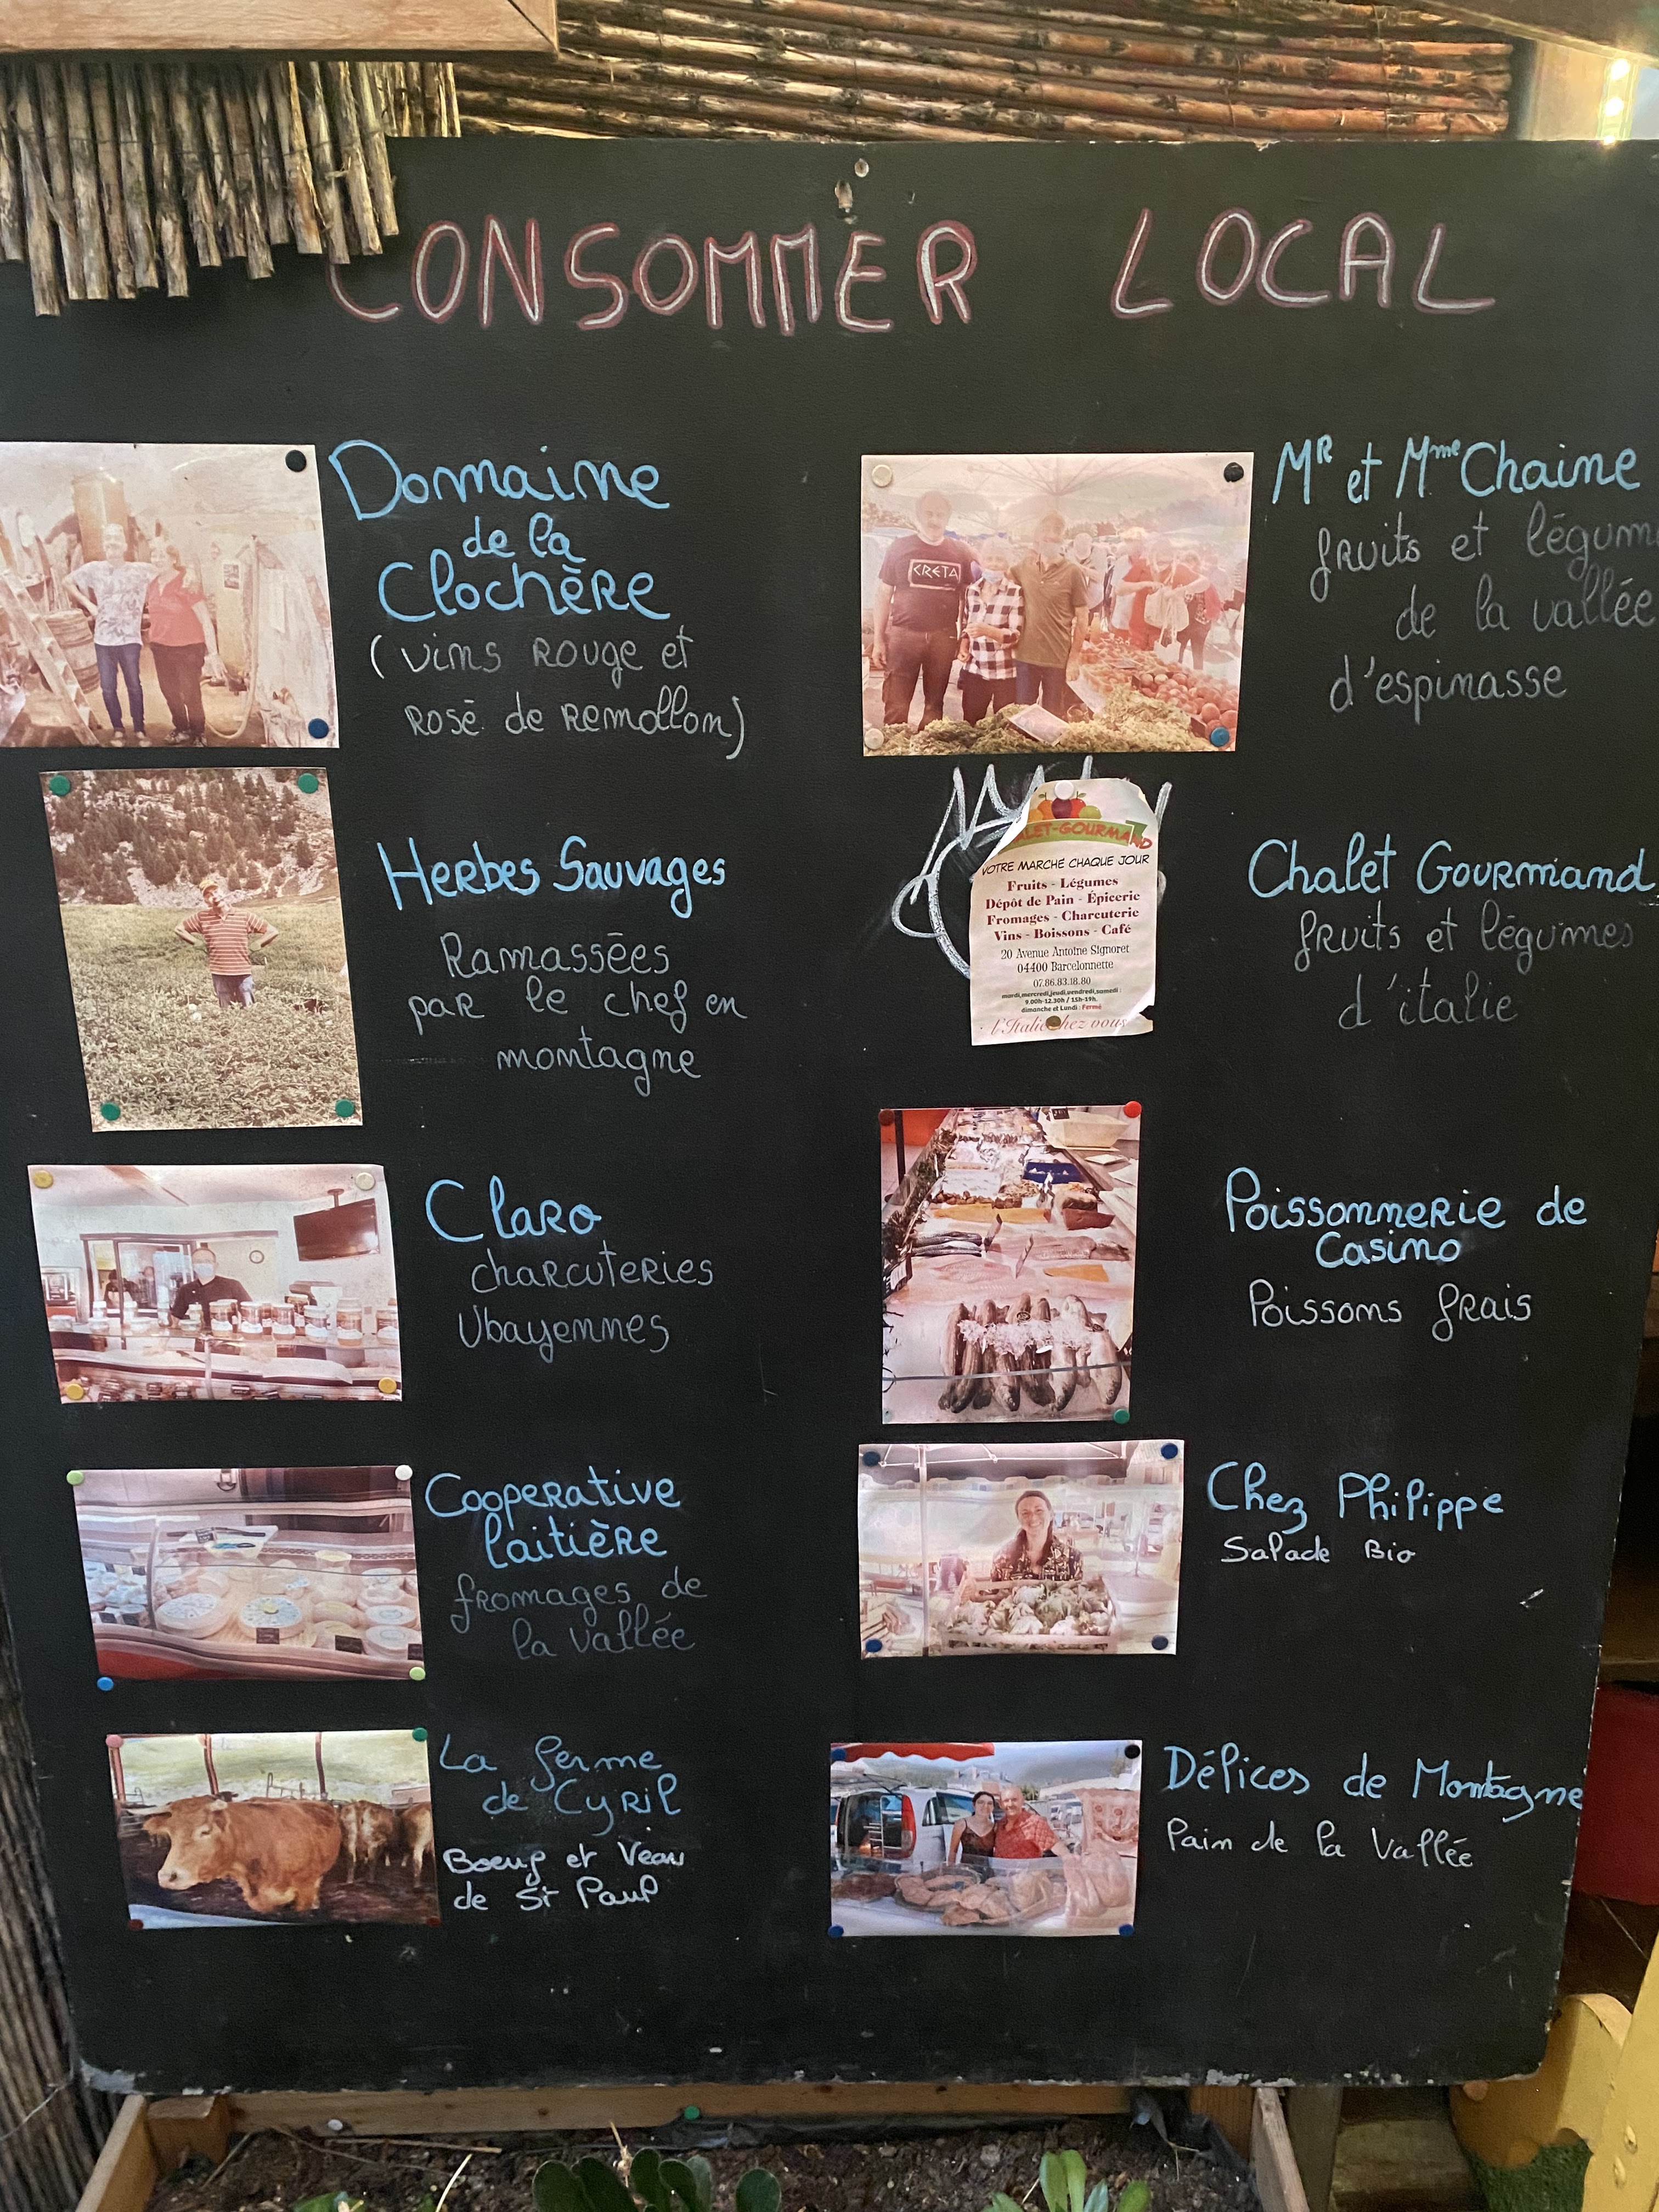 CONSOMMER LOCAL
Domaine
de la
Clochère
(vins rouge et
rosé de Remollon)
Herbes Sauvages
Ramassées
par le chef en
montagne
Claro
charcuteries
Ubayennes
Cooperative
laitière
fromages de
la vallée
La ferme
de Cyril
Boeuf et Veau
de St Paul
Mr et Mme Chaine
fruits et légum
de la vallée
d'espinasse
CRETA
ALET-GOURMAND
VOTRE MARCHE CHAQUE JOUR
Fruits - Légumes
Dépôt de Pain - Épicerie
Fromages - Charcuterie
Vins - Boissons - Café
20 Avenue Antoine Signoret
04400 Barcelonnette
07.86.83.18.80
mardi,mercredi,jeudi,vendredi,samedi :
9.00h-12.30h / 15h-19h.
dimanche et Lundi : Fermé
l'Italie chez vous
Chalet Gourmand
fruits et légumes
d'italie
Poissonnerie de
Casino
Poissons frais
Chez Philippe
Salade Bio
Délices de Montagne
Pain de la Vallée